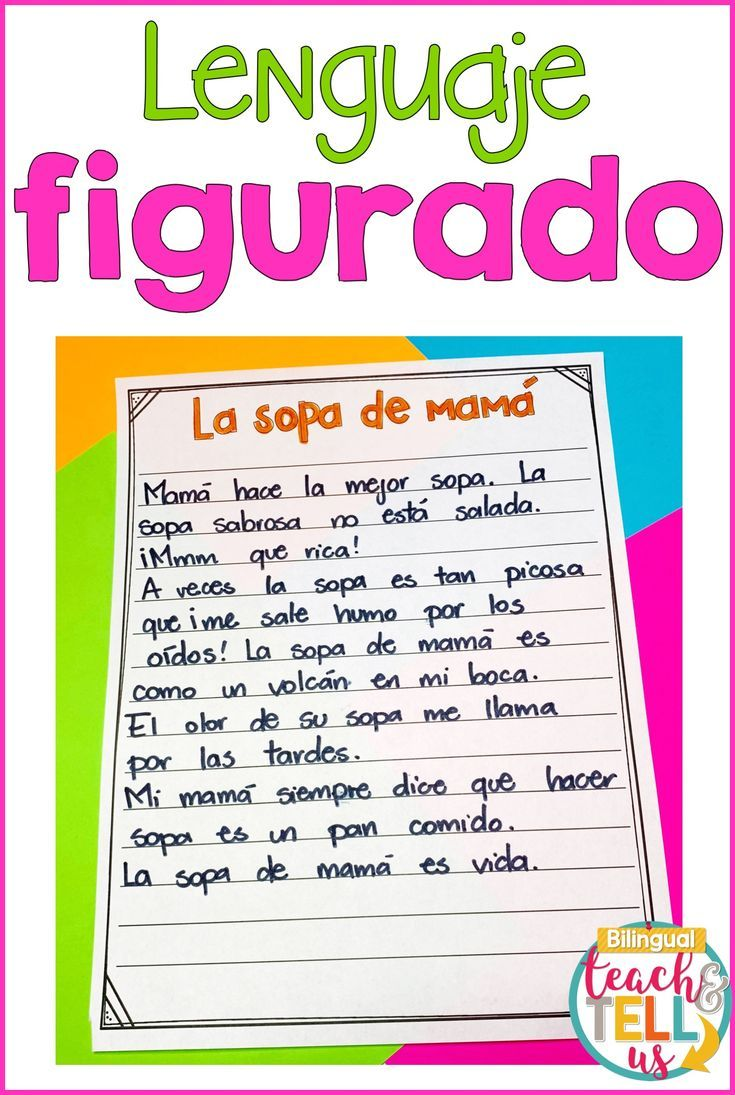 Lenguaje
figurado
La sopa de mamá
Mamá hace la mejor sopa. La
sopa sabrosa no está salada.
¡Mmm que rica!
A veces la sopa es tan picosa
que ¡me sale humo por los
oídos! La sopa de mamá es
como un volcán en mi boca.
El olor de su sopa me llama
por las tardes.
Mi mamá siempre dice que hacer
sopa es un pan comido.
La sopa de mamá es vida.
Bilingual
teach &
TELL
us